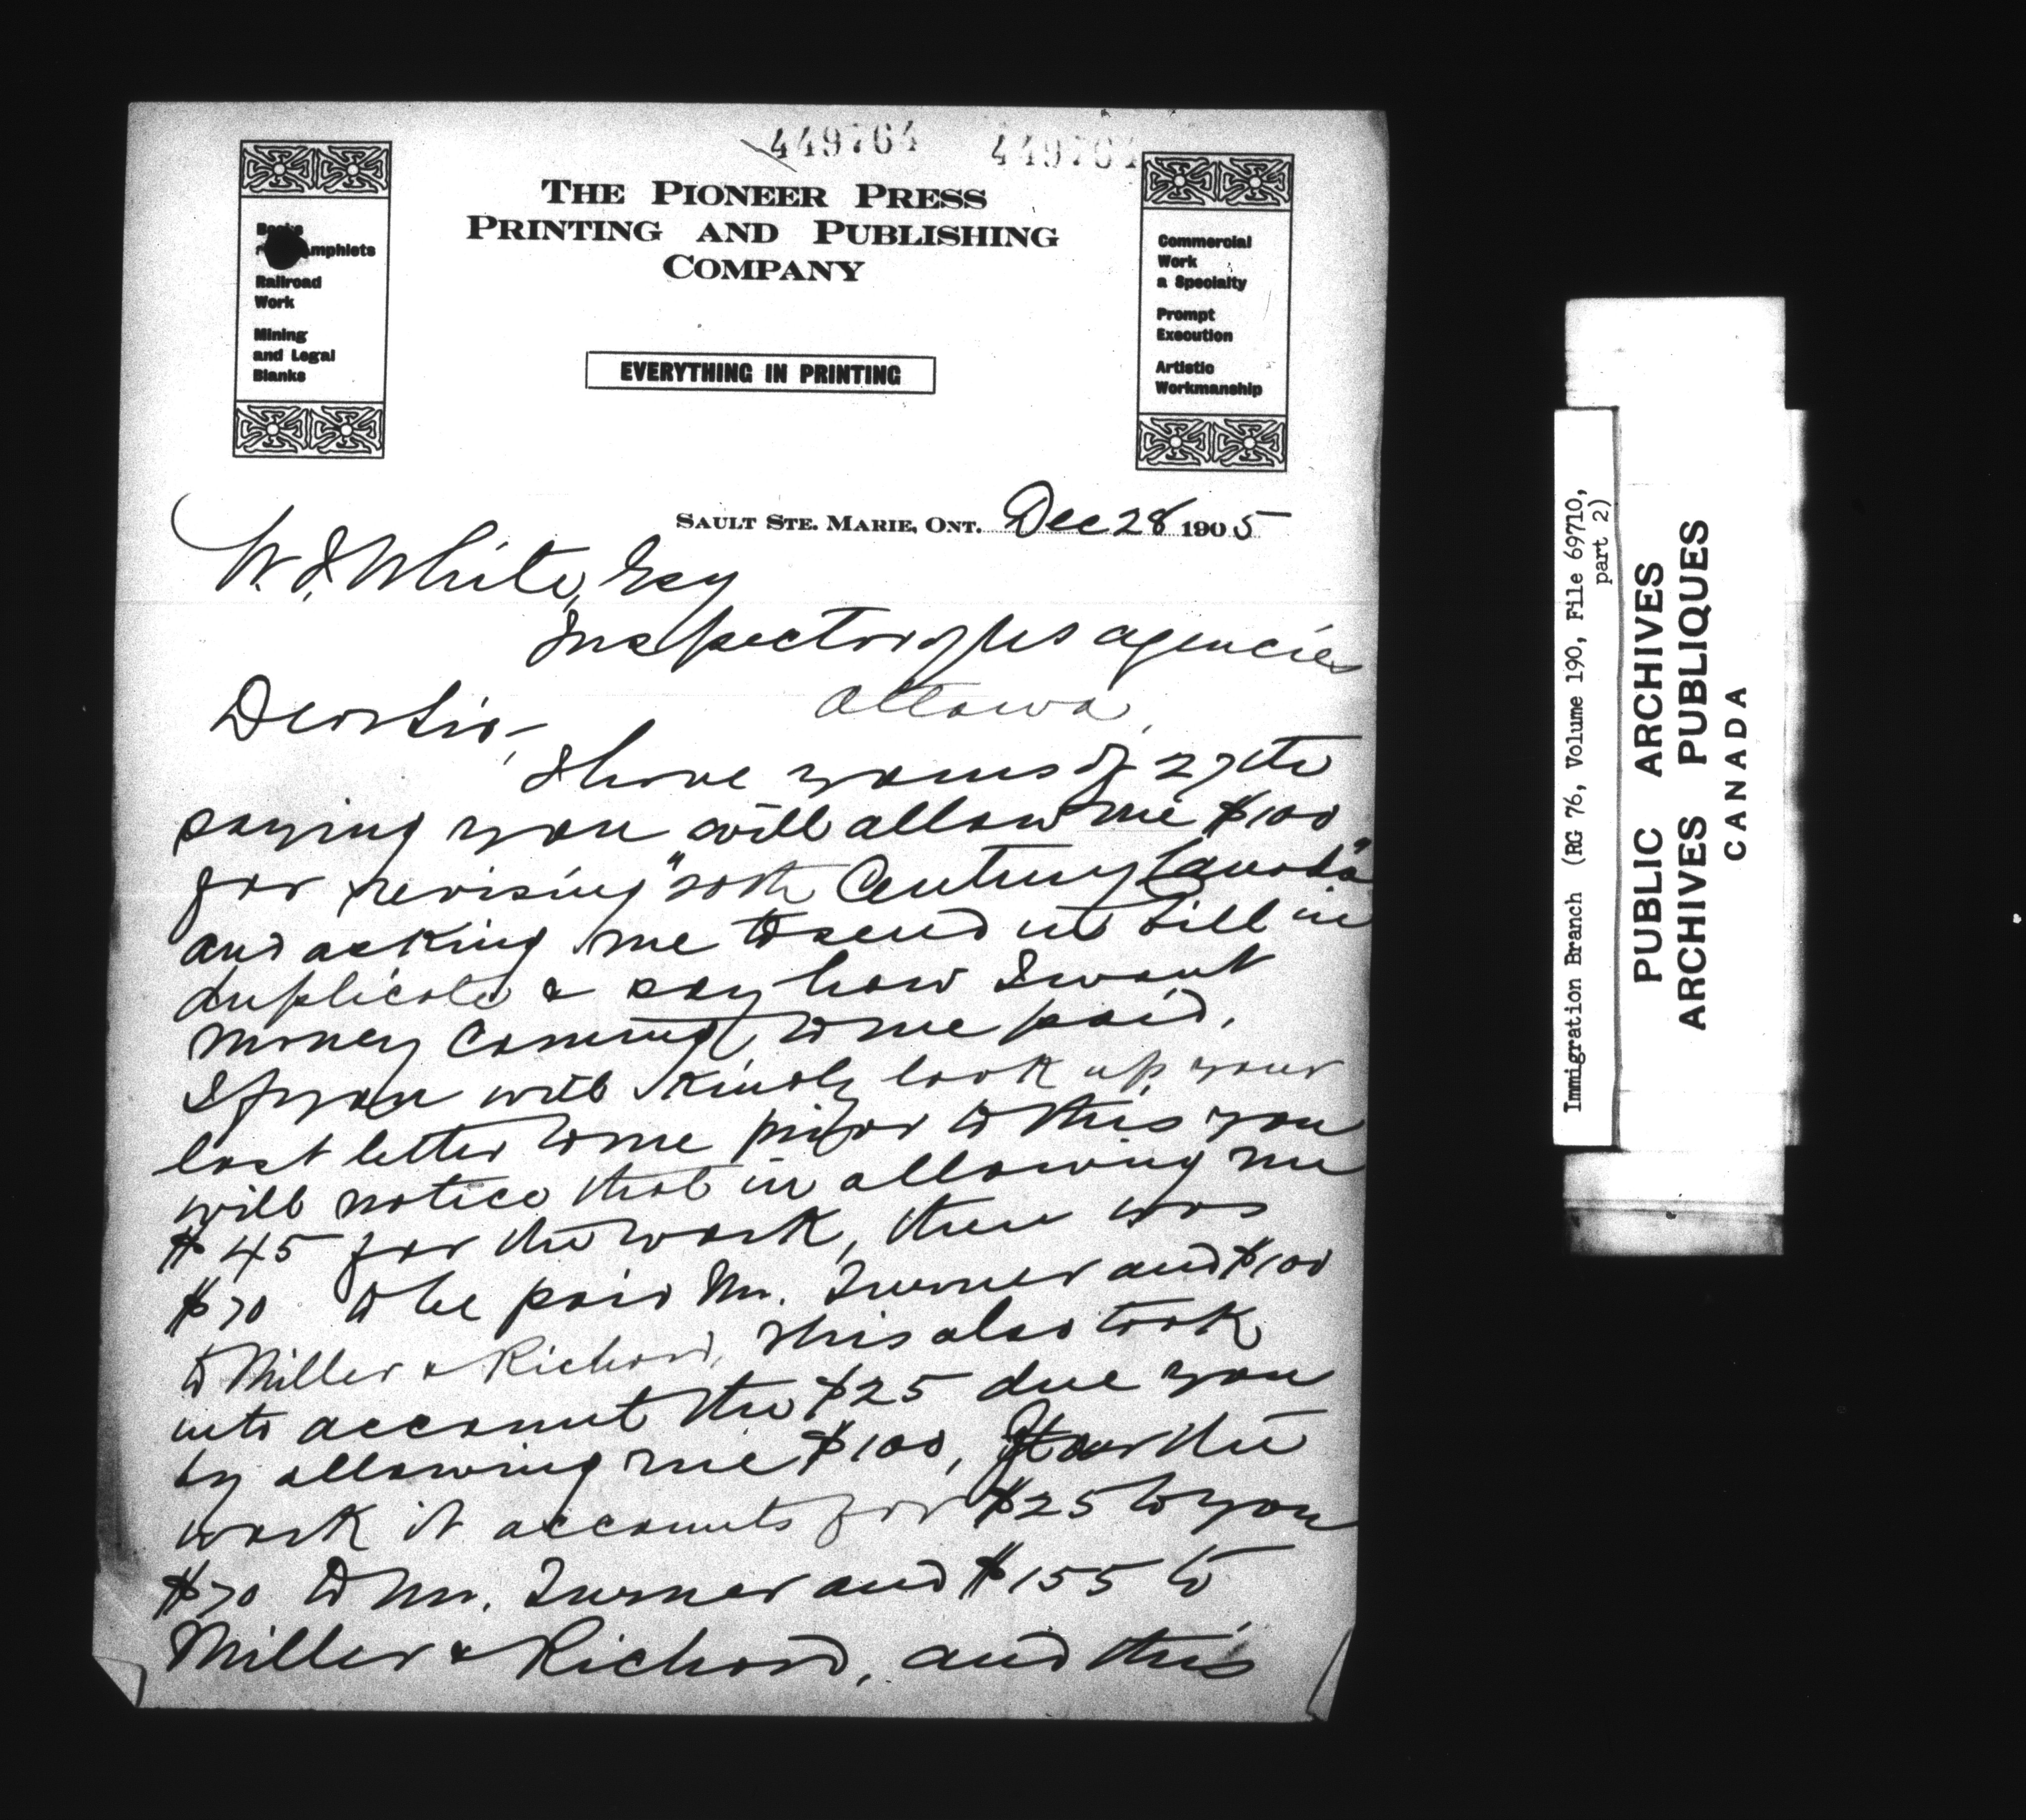 449764 449764
THE PIONEER PRESS
PRINTING AND PUBLISHING
COMPANY
EVERYTHING IN PRINTING
Books
Pamphlets
Railroad
Work
Mining
and Legal
Blanks
Commercial
Work
a Specialty
Prompt
Execution
Artistic
Workmanship
SAULT STE. MARIE, ONT. Dec 28 1905
W. J. White, Esq
Inspector of US agencies
Ottawa,
Dear Sir,-
I have yours of 27th
saying you will allow me $100
for revising "20th Century Canada"
and asking me to send in bill in
duplicate & say how I want
money coming to me paid.
If you will kindly look up your
last letter to me prior to this you
will notice that in allowing me
$45 for the work, there was
$70 to be paid Mr. Turner and $100
to Miller & Richard, This also took
into account the $25 due you
by allowing me $100, for the
work it accounts for $25 to you
$70 to Mr. Turner and $155 to
Miller & Richard, and this
Immigration Branch (RG 76, Volume 190, File 69710,
part 2)
PUBLIC ARCHIVES
ARCHIVES PUBLIQUES
CANADA